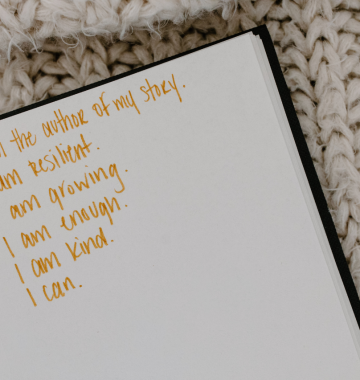 the author of my story.
am resilient.
am growing.
I am enough.
I am kind.
I can.